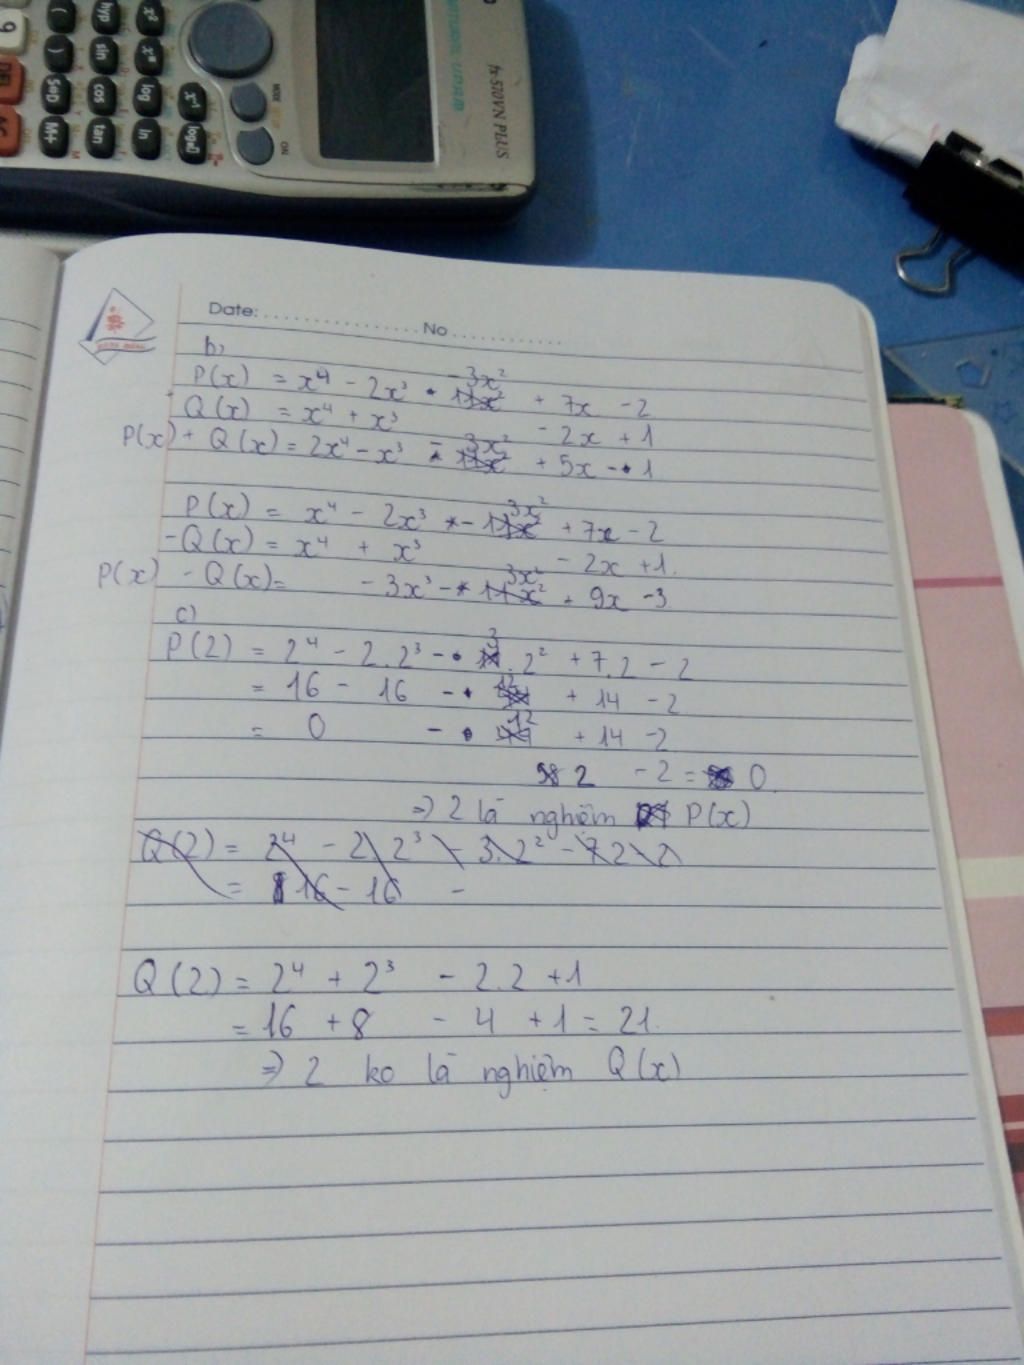 fx-570VN PLUS
NATURAL-V.P.A.M.
MODE
ON
hyp
sin
cos
tan
log
ln
M+
DEL
AC
9
Date: No
b,
P(x) = x⁴ - 2x³ - 3x² + 7x - 2
Q(x) = x⁴ + x³ - 2x + 1
P(x) + Q(x) = 2x⁴ - x³ - 3x² + 5x - 1
P(x) = x⁴ - 2x³ - 3x² + 7x - 2
-Q(x) = x⁴ + x³ - 2x + 1.
P(x) - Q(x) = - 3x³ - 3x² + 9x - 3
c)
P(2) = 2⁴ - 2.2³ - 3.2² + 7.2 - 2
= 16 - 16 - 12 + 14 - 2
= 0 - 12 + 14 - 2
2 - 2 = 0
=> 2 là nghiệm P(x)
Q(2) = 2⁴ - 2.2³ - 3.2² - 7.2 - 2
= 16 - 16 -
Q(2) = 2⁴ + 2³ - 2.2 + 1
= 16 + 8 - 4 + 1 = 21.
=> 2 ko là nghiệm Q(x)